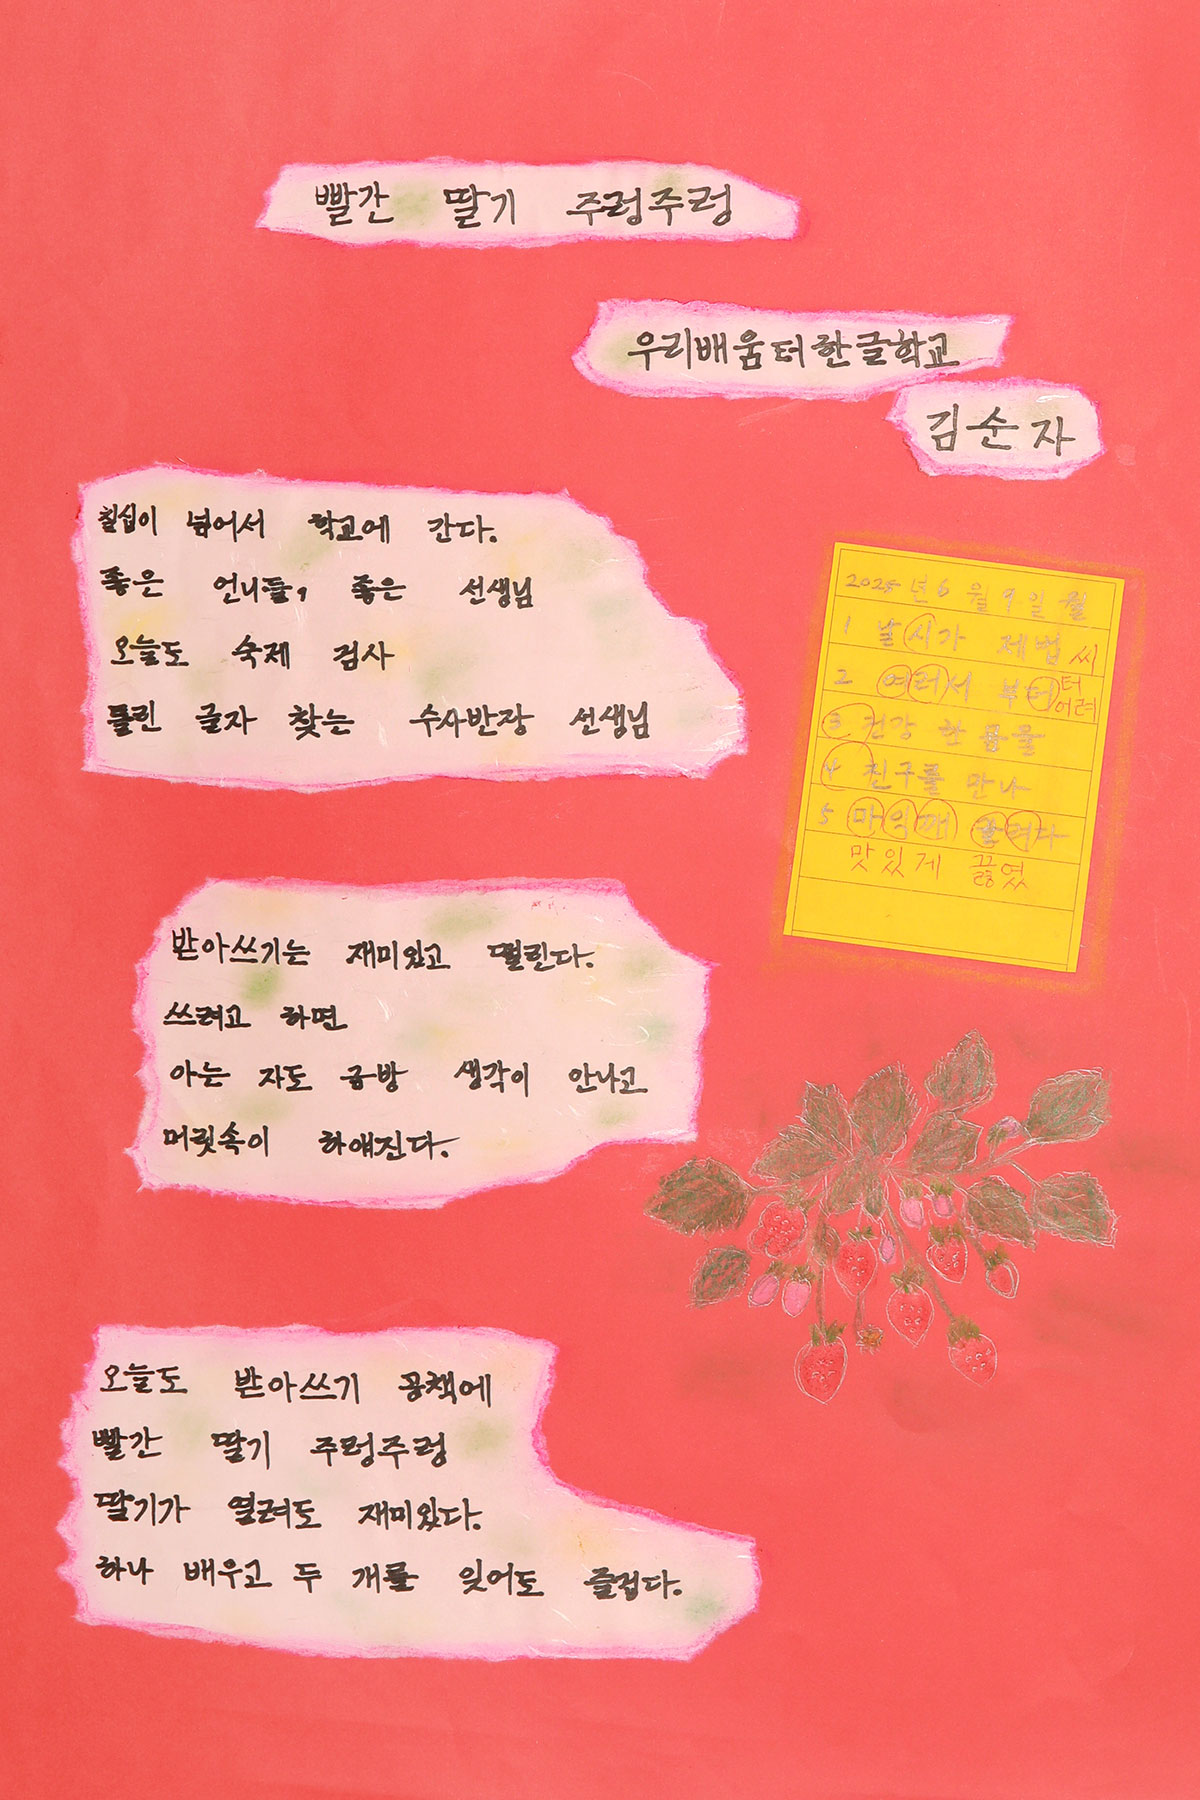 빨간 딸기 주렁주렁
우리배움터한글학교
김순자
칠십이 넘어서 학교에 간다.
좋은 언니들, 좋은 선생님
오늘도 숙제 검사
틀린 글자 찾는 수사반장 선생님
2025년 6월 9일 월
1 날시가 제법 씨
2 여러서 부터 터
어려
3 건강 한 몸을
4 친구를 만나
5 마익깨 끌려다
맛있게 끓였
받아쓰기는 재미있고 떨린다.
쓰려고 하면
아는 자도 금방 생각이 안나고
머릿속이 하얘진다.
오늘도 받아쓰기 공책에
빨간 딸기 주렁주렁
딸기가 열려도 재미있다.
하나 배우고 두 개를 잊어도 즐겁다.